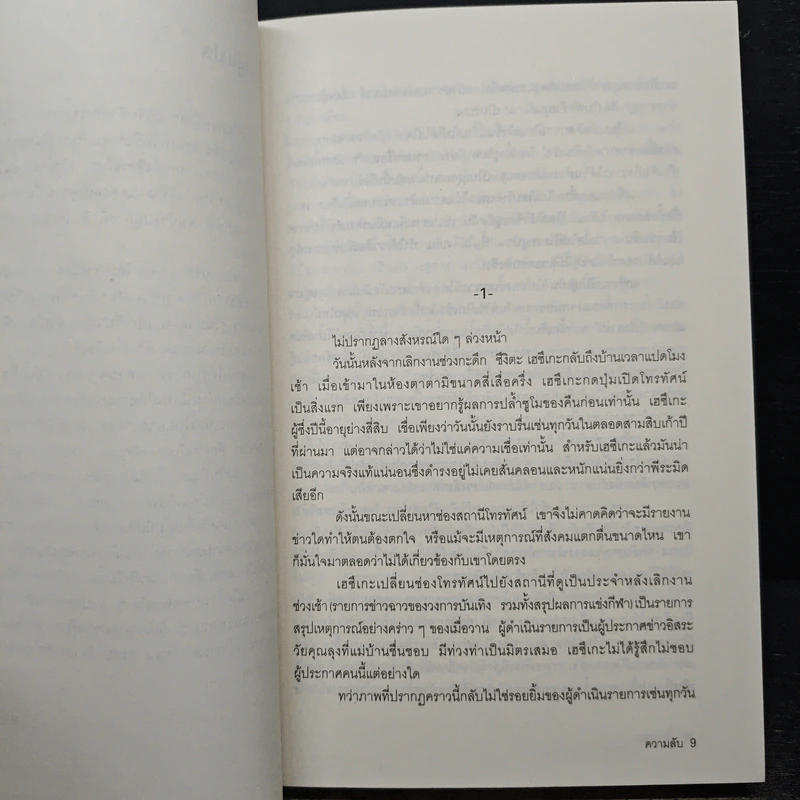 -1-
ไม่ปรากฏลางสังหรณ์ใด ๆ ล่วงหน้า
วันนั้นหลังจากเลิกงานช่วงกะดึก ชิงิตะ เฮซึเกะกลับถึงบ้านเวลาแปดโมง
เช้า เมื่อเข้ามาในห้องตาตามิขนาดสี่เสื่อครึ่ง เฮซึเกะกดปุ่มเปิดโทรทัศน์
เป็นสิ่งแรก เพียงเพราะเขาอยากรู้ผลการปล้ำซูโมของคืนก่อนเท่านั้น เฮซึเกะ
ผู้ซึ่งปีนี้อายุย่างสี่สิบ เชื่อเพียงว่าวันนั้นยังราบรื่นเช่นทุกวันในตลอดสามสิบเก้าปี
ที่ผ่านมา แต่อาจกล่าวได้ว่าไม่ใช่แค่ความเชื่อเท่านั้น สำหรับเฮซึเกะแล้วมันน่า
เป็นความจริงแท้แน่นอนซึ่งดำรงอยู่ไม่เคยสั่นคลอนและหนักแน่นยิ่งกว่าพีระมิด
เสียอีก
ดังนั้นขณะเปลี่ยนหาช่องสถานีโทรทัศน์ เขาจึงไม่คาดคิดว่าจะมีรายงาน
ข่าวใดทำให้ตนต้องตกใจ หรือแม้จะมีเหตุการณ์ที่สังคมแตกตื่นขนาดไหน เขา
ก็มั่นใจมาตลอดว่าไม่ได้เกี่ยวข้องกับเขาโดยตรง
เฮซึเกะเปลี่ยนช่องโทรทัศน์ไปยังสถานีที่ดูเป็นประจำหลังเลิกงาน
ช่วงเช้า (รายการข่าวฉาวของวงการบันเทิง รวมทั้งสรุปผลการแข่งกีฬา) เป็นรายการ
สรุปเหตุการณ์อย่างคร่าว ๆ ของเมื่อวาน ผู้ดำเนินรายการเป็นผู้ประกาศข่าวอิสระ
วัยคุณลุงที่แม่บ้านชื่นชอบ มีท่วงท่าเป็นมิตรเสมอ เฮซึเกะไม่ได้รู้สึกไม่ชอบ
ผู้ประกาศคนนี้แต่อย่างใด
ทว่าภาพที่ปรากฏคราวนี้กลับไม่ใช่รอยยิ้มของผู้ดำเนินรายการเช่นทุกวัน
ความลับ 9